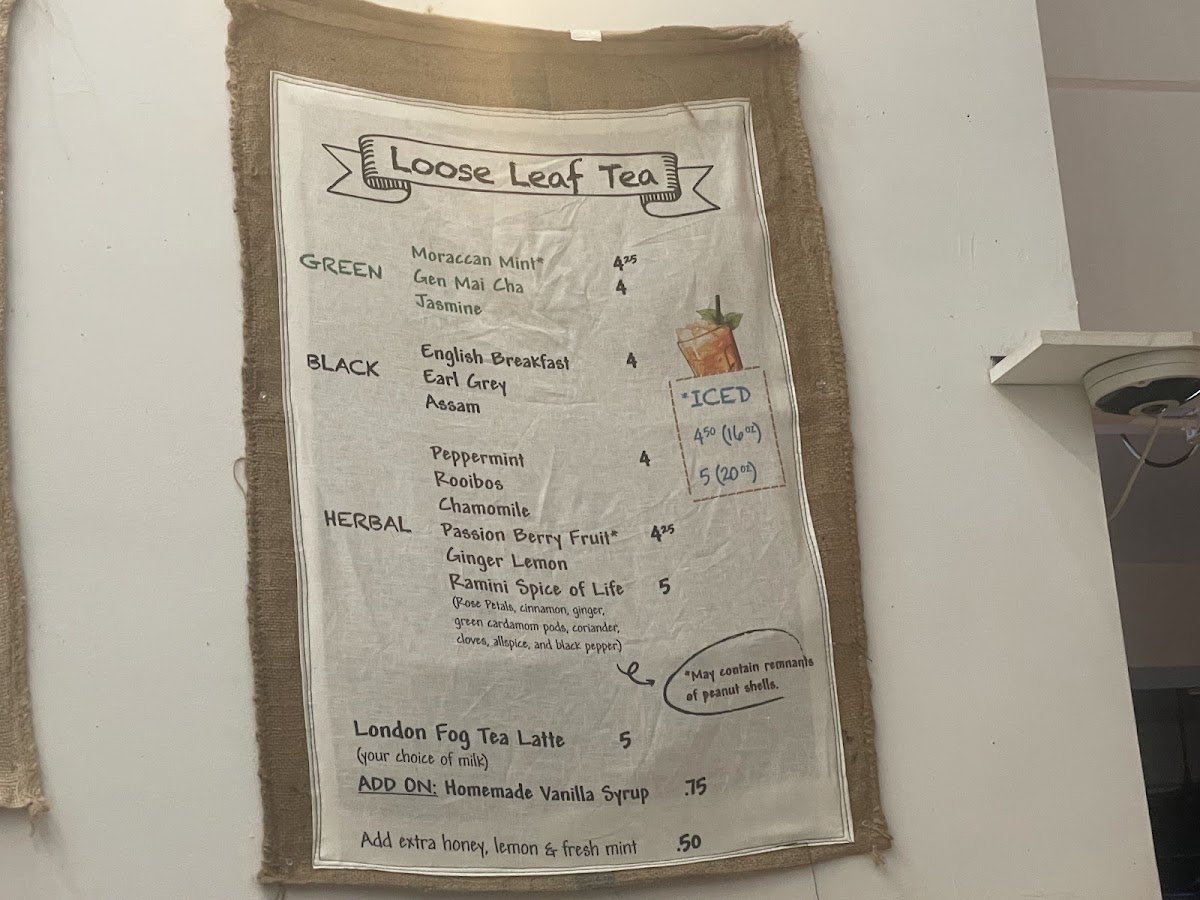 Loose Leaf Tea
GREEN
Moraccan Mint* 4²⁵
Gen Mai Cha 4
Jasmine
BLACK
English Breakfast 4
Earl Grey
Assam
*ICED
4⁵⁰ (16oz)
5 (20oz)
HERBAL
Peppermint 4
Rooibos
Chamomile
Passion Berry Fruit* 4²⁵
Ginger Lemon
Ramini Spice of Life 5
(Rose Petals, cinnamon, ginger,
green cardamom pods, coriander,
cloves, allspice, and black pepper)
*May contain remnants
of peanut shells.
London Fog Tea Latte 5
(your choice of milk)
ADD ON: Homemade Vanilla Syrup .75
Add extra honey, lemon & fresh mint .50